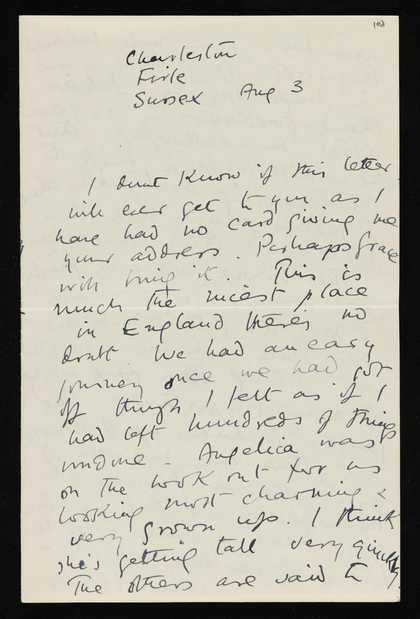 108
Charleston
Firle
Sussex Aug 3
I don't know if this letter
will ever get to you as I
have had no card giving me
your address. Perhaps Grace
will bring it. This is
much the nicest place
in England there's no
doubt. We had an easy
journey once we had got
off though I felt as if I
had left hundreds of things
undone. Angelica was
on the look out for us
looking most charming &
very grown up. I think
she's getting tall very quickly
The others are said to